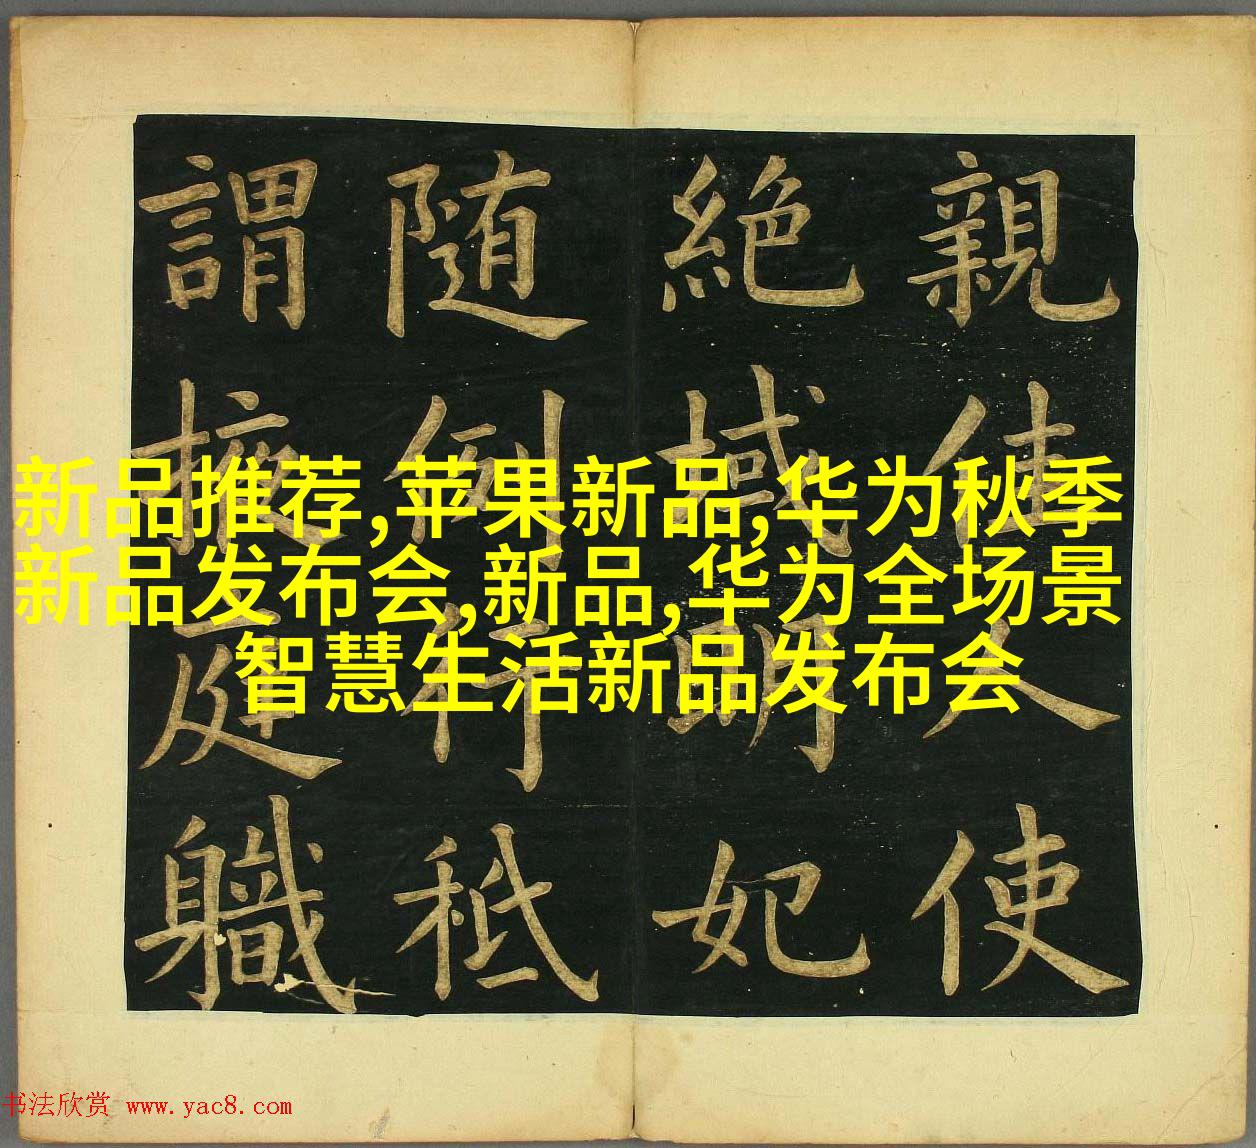 親使人使
絶域明妃
随例行秪
謂掖庭職
新品推荐,苹果新品,华为秋季
新品发布会,新品,华为全场景
智慧生活新品发布会
书法欣赏 www.yac8.com